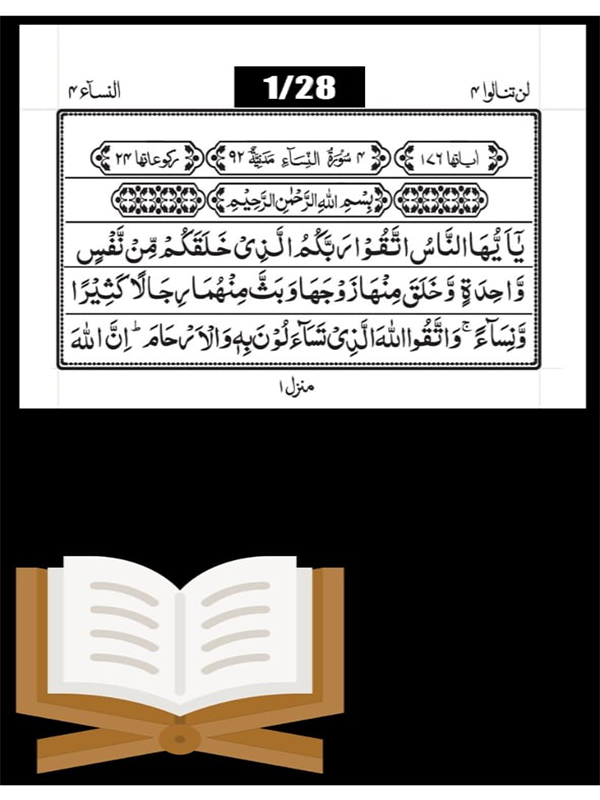 النسآء ۴
1/28
لن تنالوا ۴
اٰیاتها ۱۷٦
۴ سُوْرَةُ النِّسَآءِ مَدَنِیَّةٌ ۹۲
رکوعاتها ۲۴
بِسْمِ اللهِ الرَّحْمٰنِ الرَّحِیْمِ
یٰۤاَیُّهَا النَّاسُ اتَّقُوْا رَبَّكُمُ الَّذِیْ خَلَقَكُمْ مِّنْ نَّفْسٍ
وَّاحِدَةٍ وَّخَلَقَ مِنْهَا زَوْجَهَا وَبَثَّ مِنْهُمَا رِجَالًا كَثِیْرًا
وَّنِسَآءً ۚ وَاتَّقُوا اللهَ الَّذِیْ تَسَآءَلُوْنَ بِهٖ وَالْاَرْحَامَ ؕ اِنَّ اللهَ
منزل ۱